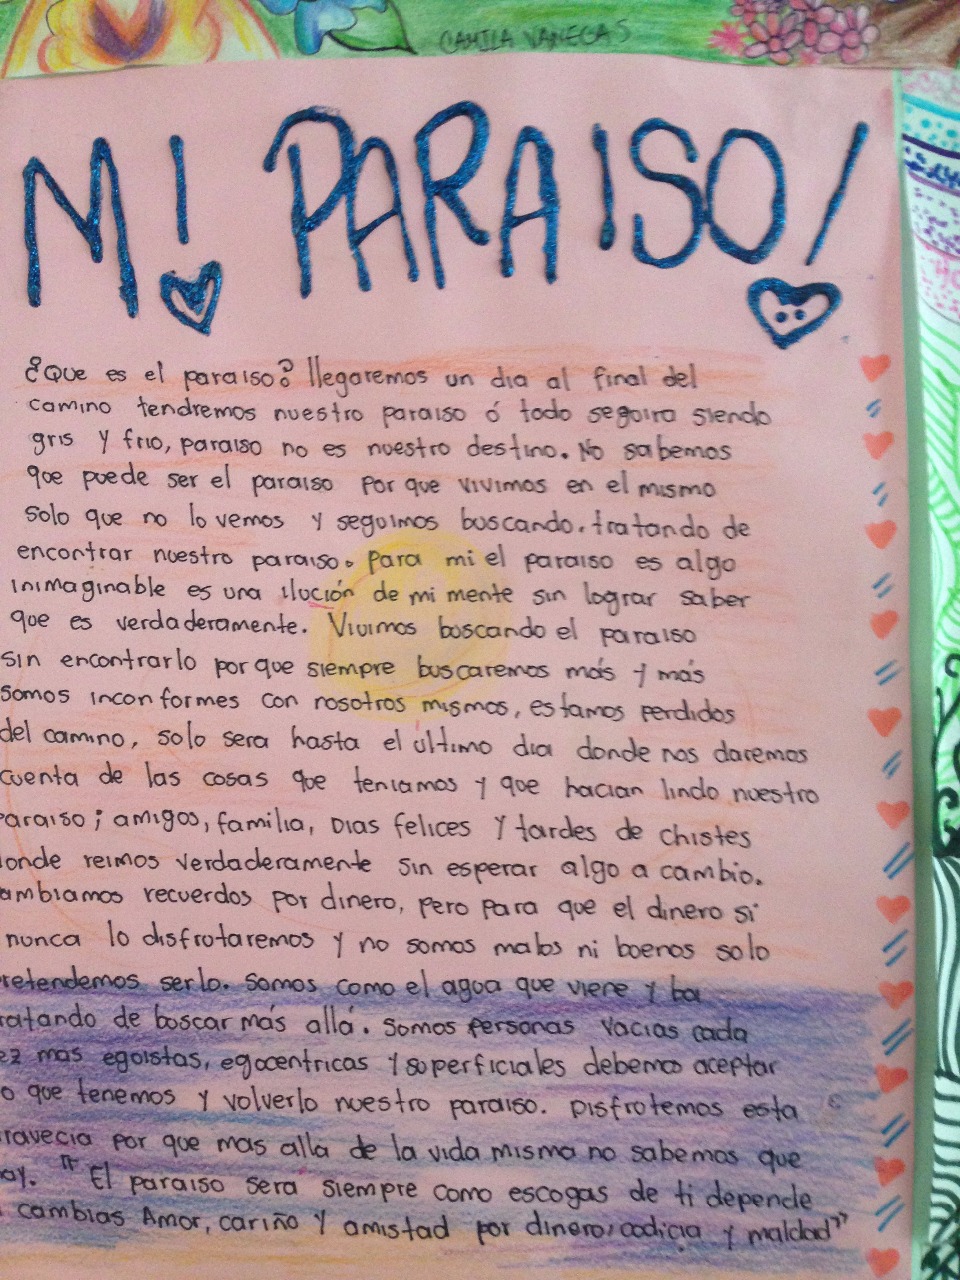 CAMILA VANEGAS
MI PARAISO!
¿Que es el paraiso? llegaremos un dia al final del
camino tendremos nuestro paraiso ó todo seguira siendo
gris y frio, paraiso no es nuestro destino. No sabemos
que puede ser el paraiso por que vivimos en el mismo
solo que no lo vemos y seguimos buscando. tratando de
encontrar nuestro paraiso. para mi el paraiso es algo
inimaginable es una ilución de mi mente sin lograr saber
que es verdaderamente. Vivimos buscando el paraiso
sin encontrarlo por que siempre buscaremos más y más
somos inconformes con nosotros mismos, estamos perdidos
del camino, solo sera hasta el último dia donde nos daremos
cuenta de las cosas que teniamos y que hacian lindo nuestro
araiso; amigos, familia, Dias felices y tardes de chistes
onde reimos verdaderamente sin esperar algo a cambio.
ambiamos recuerdos por dinero, pero para que el dinero si
nunca lo disfrutaremos y no somos malos ni buenos solo
retendemos serlo. Somos como el agua que viene y ba
ratando de buscar más allá. Somos personas vacias cada
ez mas egoistas, egocentricas y superficiales debemos aceptar
o que tenemos y volverlo nuestro paraiso. Disfrutemos esta
ravecia por que mas allá de la vida misma no sabemos que
ay. "El paraiso sera siempre como escogas de ti depende
cambias Amor, cariño y amistad por dinero, codicia y maldad"